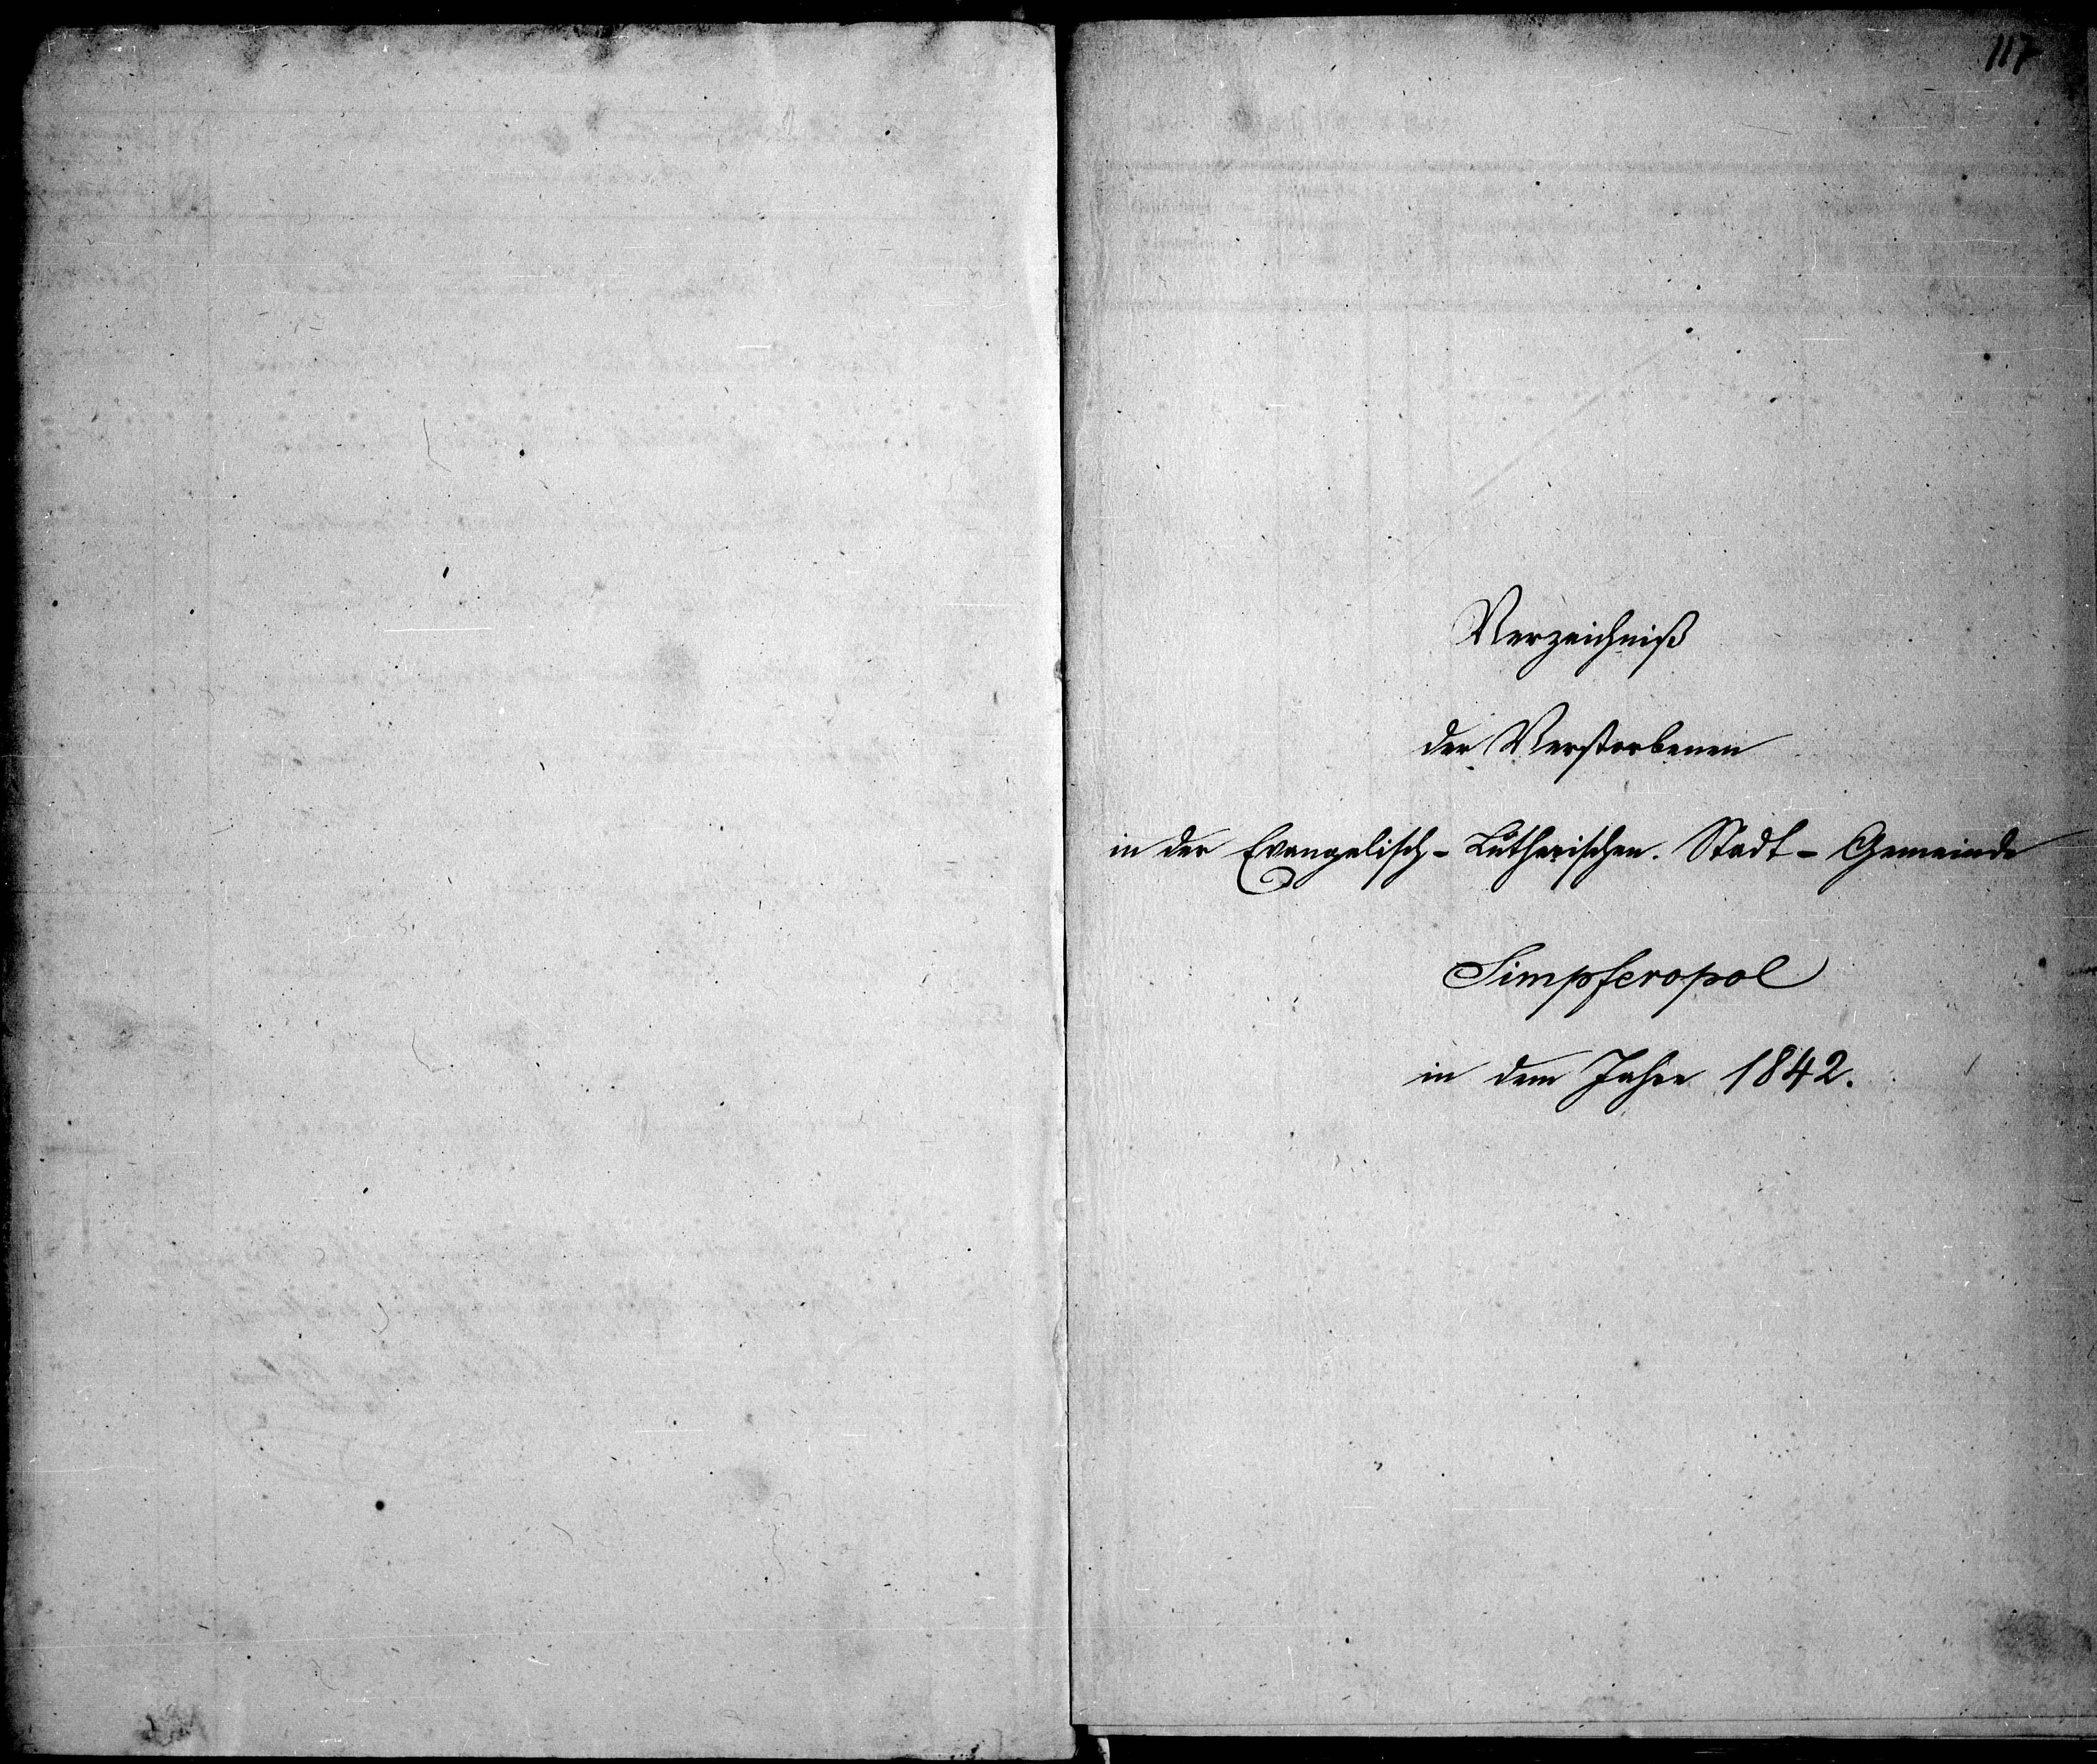 117
Verzeichniß
der Verstorbenen
in der Evangelisch-Lutherischen. Stadt-Gemeinde
Simpferopol
in dem Jahre 1842.